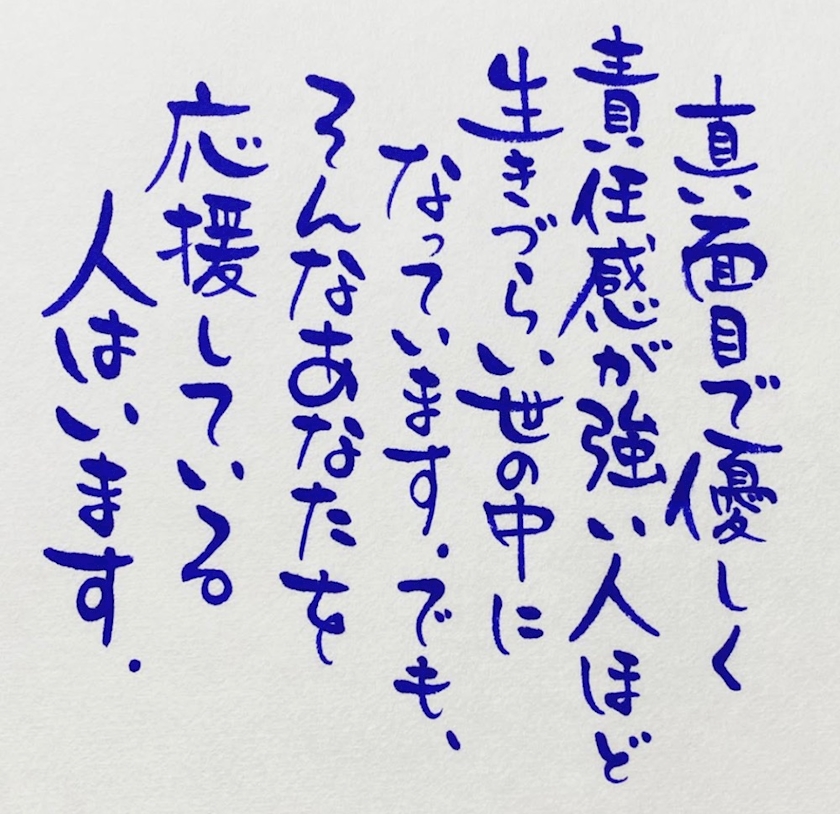 真面目で優しく
責任感が強い人ほど
生きづらい世の中に
なっています.でも、
そんなあなたを
応援している
人はいます.